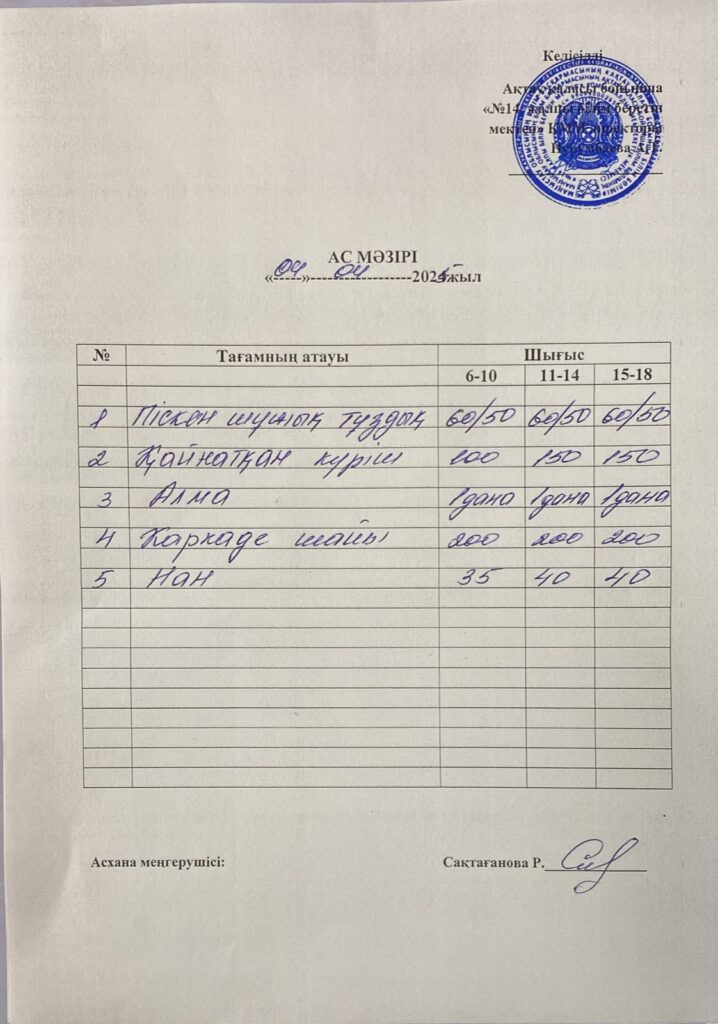 Келісілді
Ақтау қаласы бойынша
«№14 жалпы білім беретін
мектеп» КММ директоры
АС МӘЗІРІ
«04»04-2025жыл
№ Тағамның атауы Шығыс
6-10 11-14 15-18
1 Піскен шұжық тұздық 60/50 60/50 60/50
2 Қайнатқан күріш 100 150 150
3 Алма 1дана 1дана 1дана
4 Каркаде шайы 200 200 200
5 Нан 35 40 40
Асхана меңгерушісі: Сақтағанова Р.